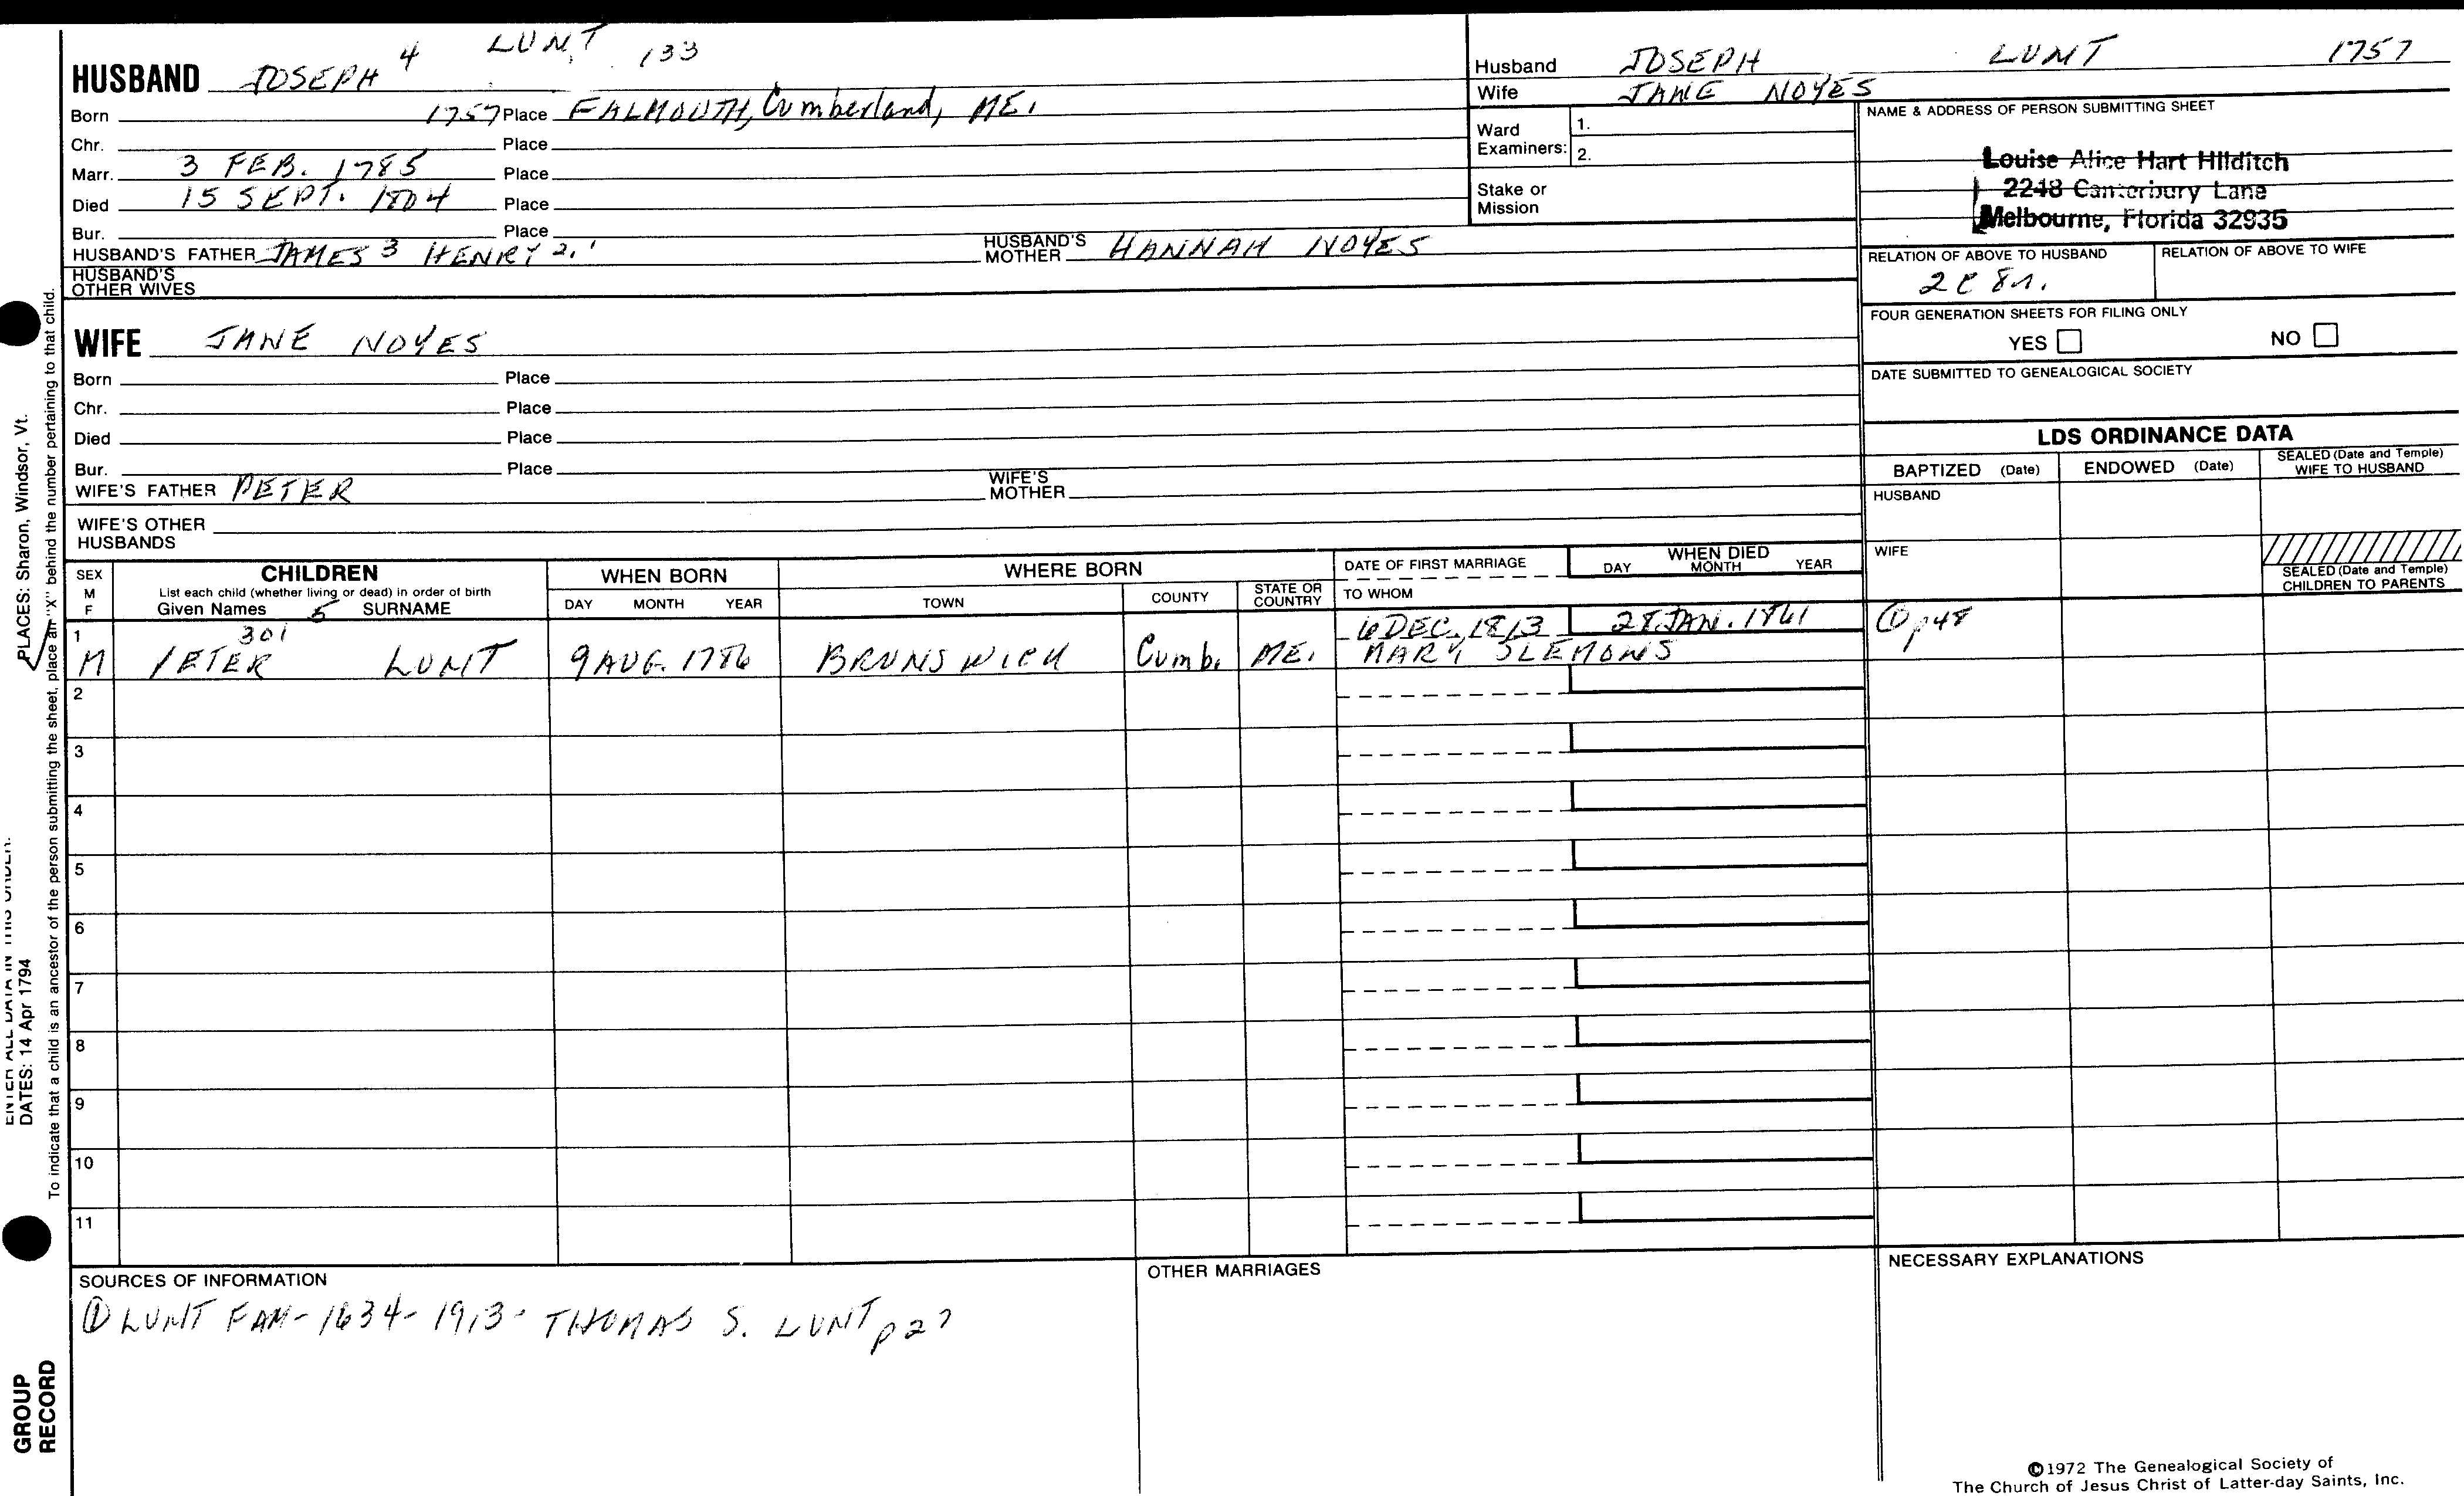 HUSBAND JOSEPH 4 LUNT 133
Born 1757 Place FALMOUTH, Cumberland, ME.
Chr. Place
Marr. 3 FEB. 1785 Place
Died 15 SEPT. 1804 Place
Bur. Place
HUSBAND'S FATHER JAMES 3 HENRY 2,1 HUSBAND'S MOTHER HANNAH NOYES
HUSBAND'S OTHER WIVES
WIFE JANE NOYES
Born Place
Chr. Place
Died Place
Bur. Place
WIFE'S FATHER PETER WIFE'S MOTHER
WIFE'S OTHER HUSBANDS
Husband JOSEPH LUNT 1757
Wife JANE NOYES
Ward Examiners: 1.
2.
Stake or Mission
NAME & ADDRESS OF PERSON SUBMITTING SHEET
Louise Alice Hart Hilditch
2248 Canterbury Lane
Melbourne, Florida 32935
RELATION OF ABOVE TO HUSBAND RELATION OF ABOVE TO WIFE
FOUR GENERATION SHEETS FOR FILING ONLY
YES NO
DATE SUBMITTED TO GENEALOGICAL SOCIETY
LDS ORDINANCE DATA
BAPTIZED (Date) ENDOWED (Date) SEALED (Date and Temple) WIFE TO HUSBAND
HUSBAND
WIFE
SEALED (Date and Temple) CHILDREN TO PARENTS
SEX M F CHILDREN WHEN BORN WHERE BORN DATE OF FIRST MARRIAGE WHEN DIED
List each child (whether living or dead) in order of birth
Given Names 5 SURNAME DAY MONTH YEAR TOWN COUNTY STATE OR COUNTRY TO WHOM DAY MONTH YEAR
1 301 6 DEC. 1813 28 JAN. 1861 ① p48
M PETER LUNT 9 AUG. 1786 BRUNSWICK Cumb. ME. MARY SLEMONS
2
3
4
5
6
7
8
9
10
11
SOURCES OF INFORMATION
① LUNT FAM - 1634 - 1913 - THOMAS S. LUNT p27
OTHER MARRIAGES
NECESSARY EXPLANATIONS
©1972 The Genealogical Society of
The Church of Jesus Christ of Latter-day Saints, Inc.
PLACES: Sharon, Windsor, Vt.
DATES: 14 Apr 1794
To indicate that a child is an ancestor of the person submitting the sheet, place an "X" behind the number pertaining to that child.
GROUP
RECORD